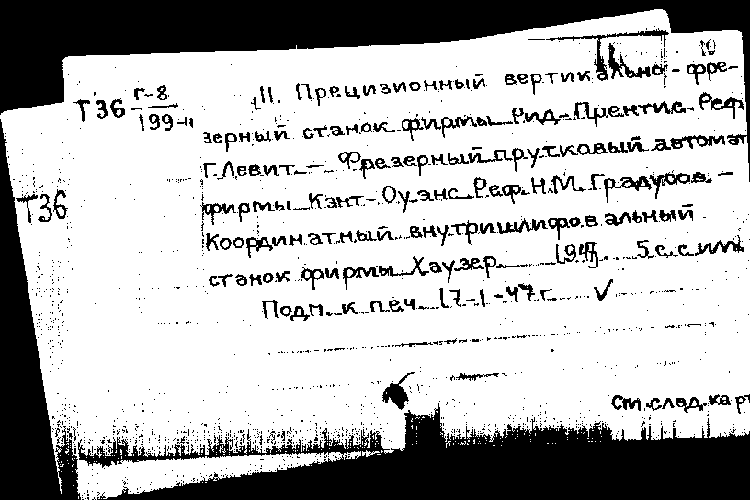 10
Т36 Г-8
199-11
11. Прецизионный вертикально-фре-
зерный станок фирмы Рид-Прентис. Реф.
Г. Левит. — Фрезерный прутковый автомат
фирмы Кэнт-Оуэнс. Реф. Н.М. Градусов. —
Координатный внутришлифовальный
станок фирмы Хаузер. [947]. 5 с. с илл.
Подп. к печ. 17-I-47 г. V
Т36
См. след. карт